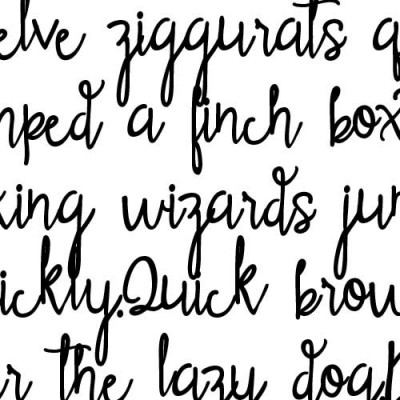 elve ziggurats q
mped a finch box
king wizards jum
ickly.Quick brow
er the lazy dog